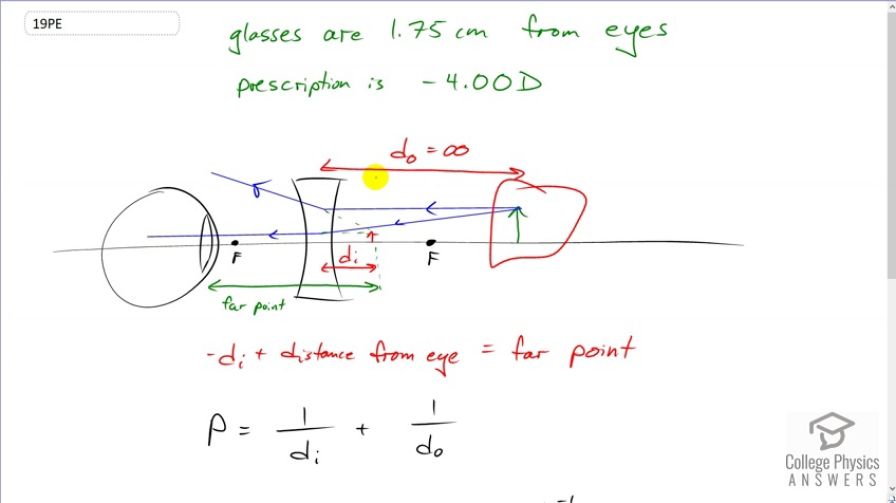 19PE
glasses are 1.75 cm from eyes
prescription is -4.00D
do = ∞
F
di
F
far point
-di + distance from eye = far point
P = 1/di + 1/do
College Physics
ANSWERS